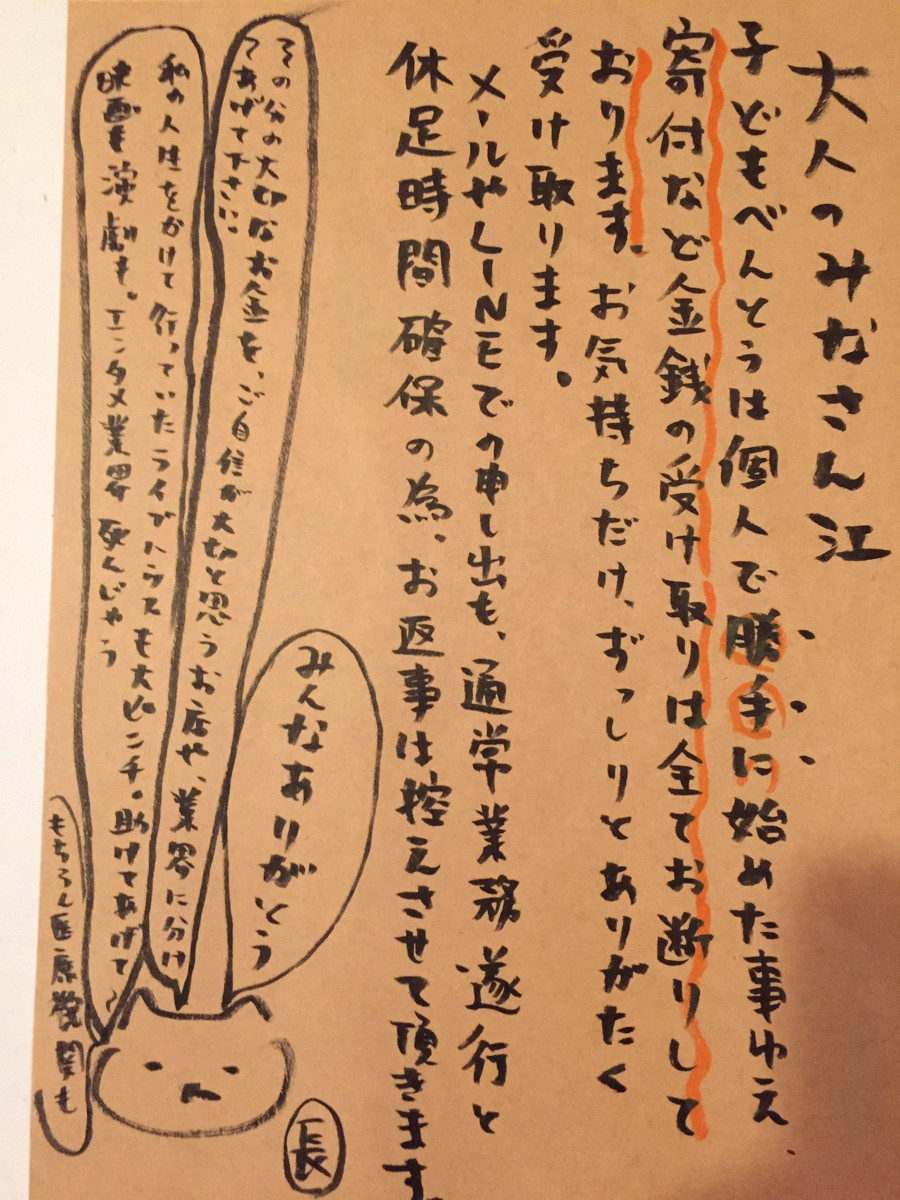 大人のみなさん江
子どもべんとうは個人で勝手に始めた事ゆえ、
寄付など金銭の受け取りは全てお断りして
おります。お気持ちだけ、ずっしりとありがたく
受け取ります。
メールやLINEでの申し出も、通常業務遂行と
休足時間確保の為、お返事は控えさせて頂きます。
みんなありがとう
その分の大切なお金を、ご自信が大切と思うお店や、業界に分け
てあげて下さい
私の人生をかけて行っていたライブハウスも大ピンチ。助けてあげて〜
映画も演劇も。エンタメ業界死んじゃう
もちろん医療機関も
長